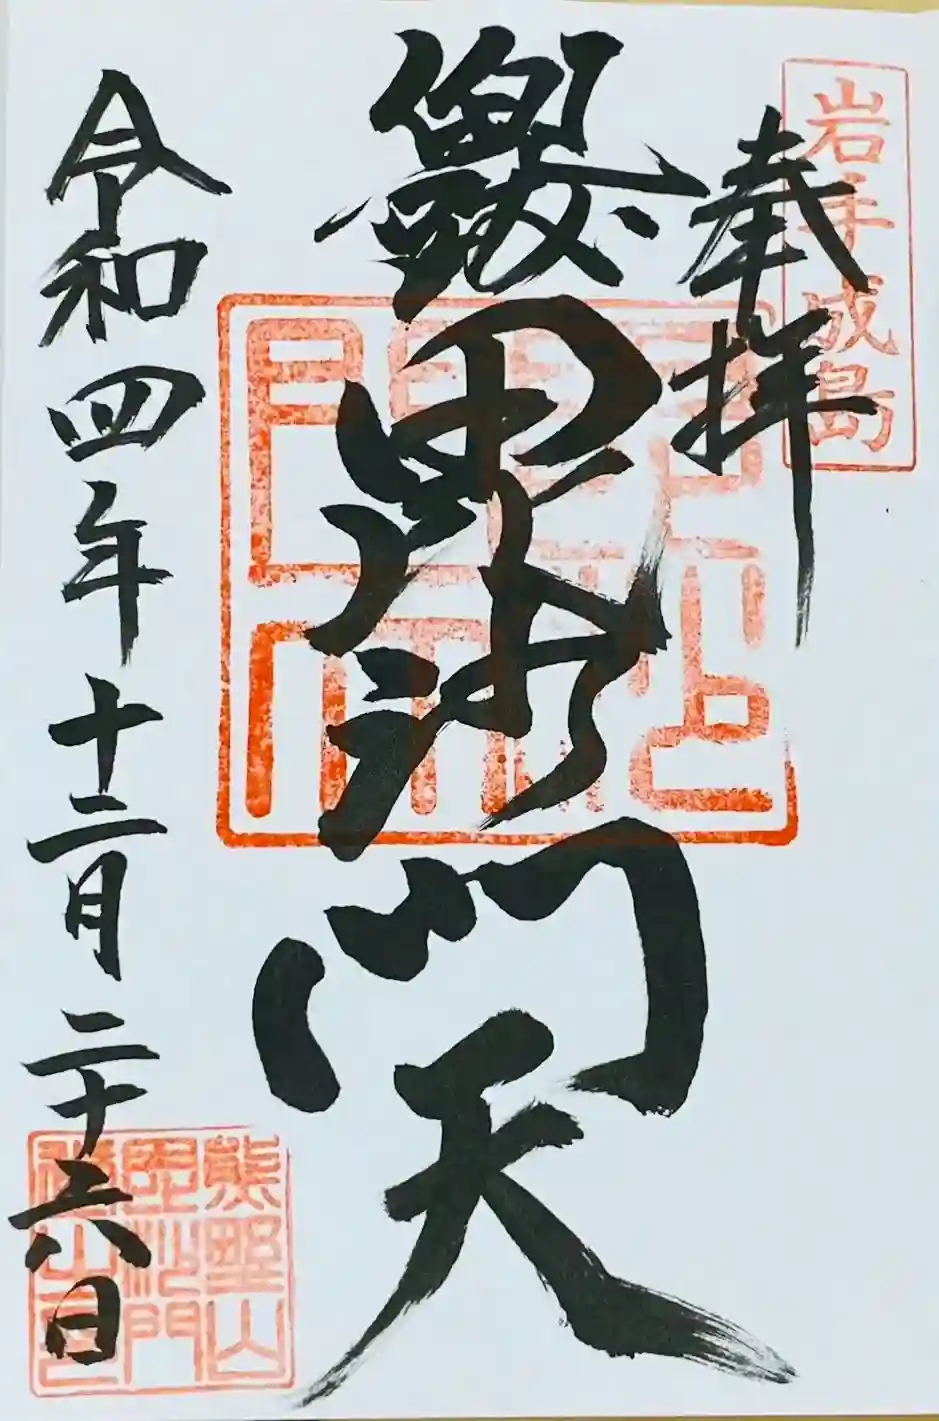 岩手成島
奉拝
兜跋毘沙門天
令和四年十二月二十六日
熊野山
毘沙門